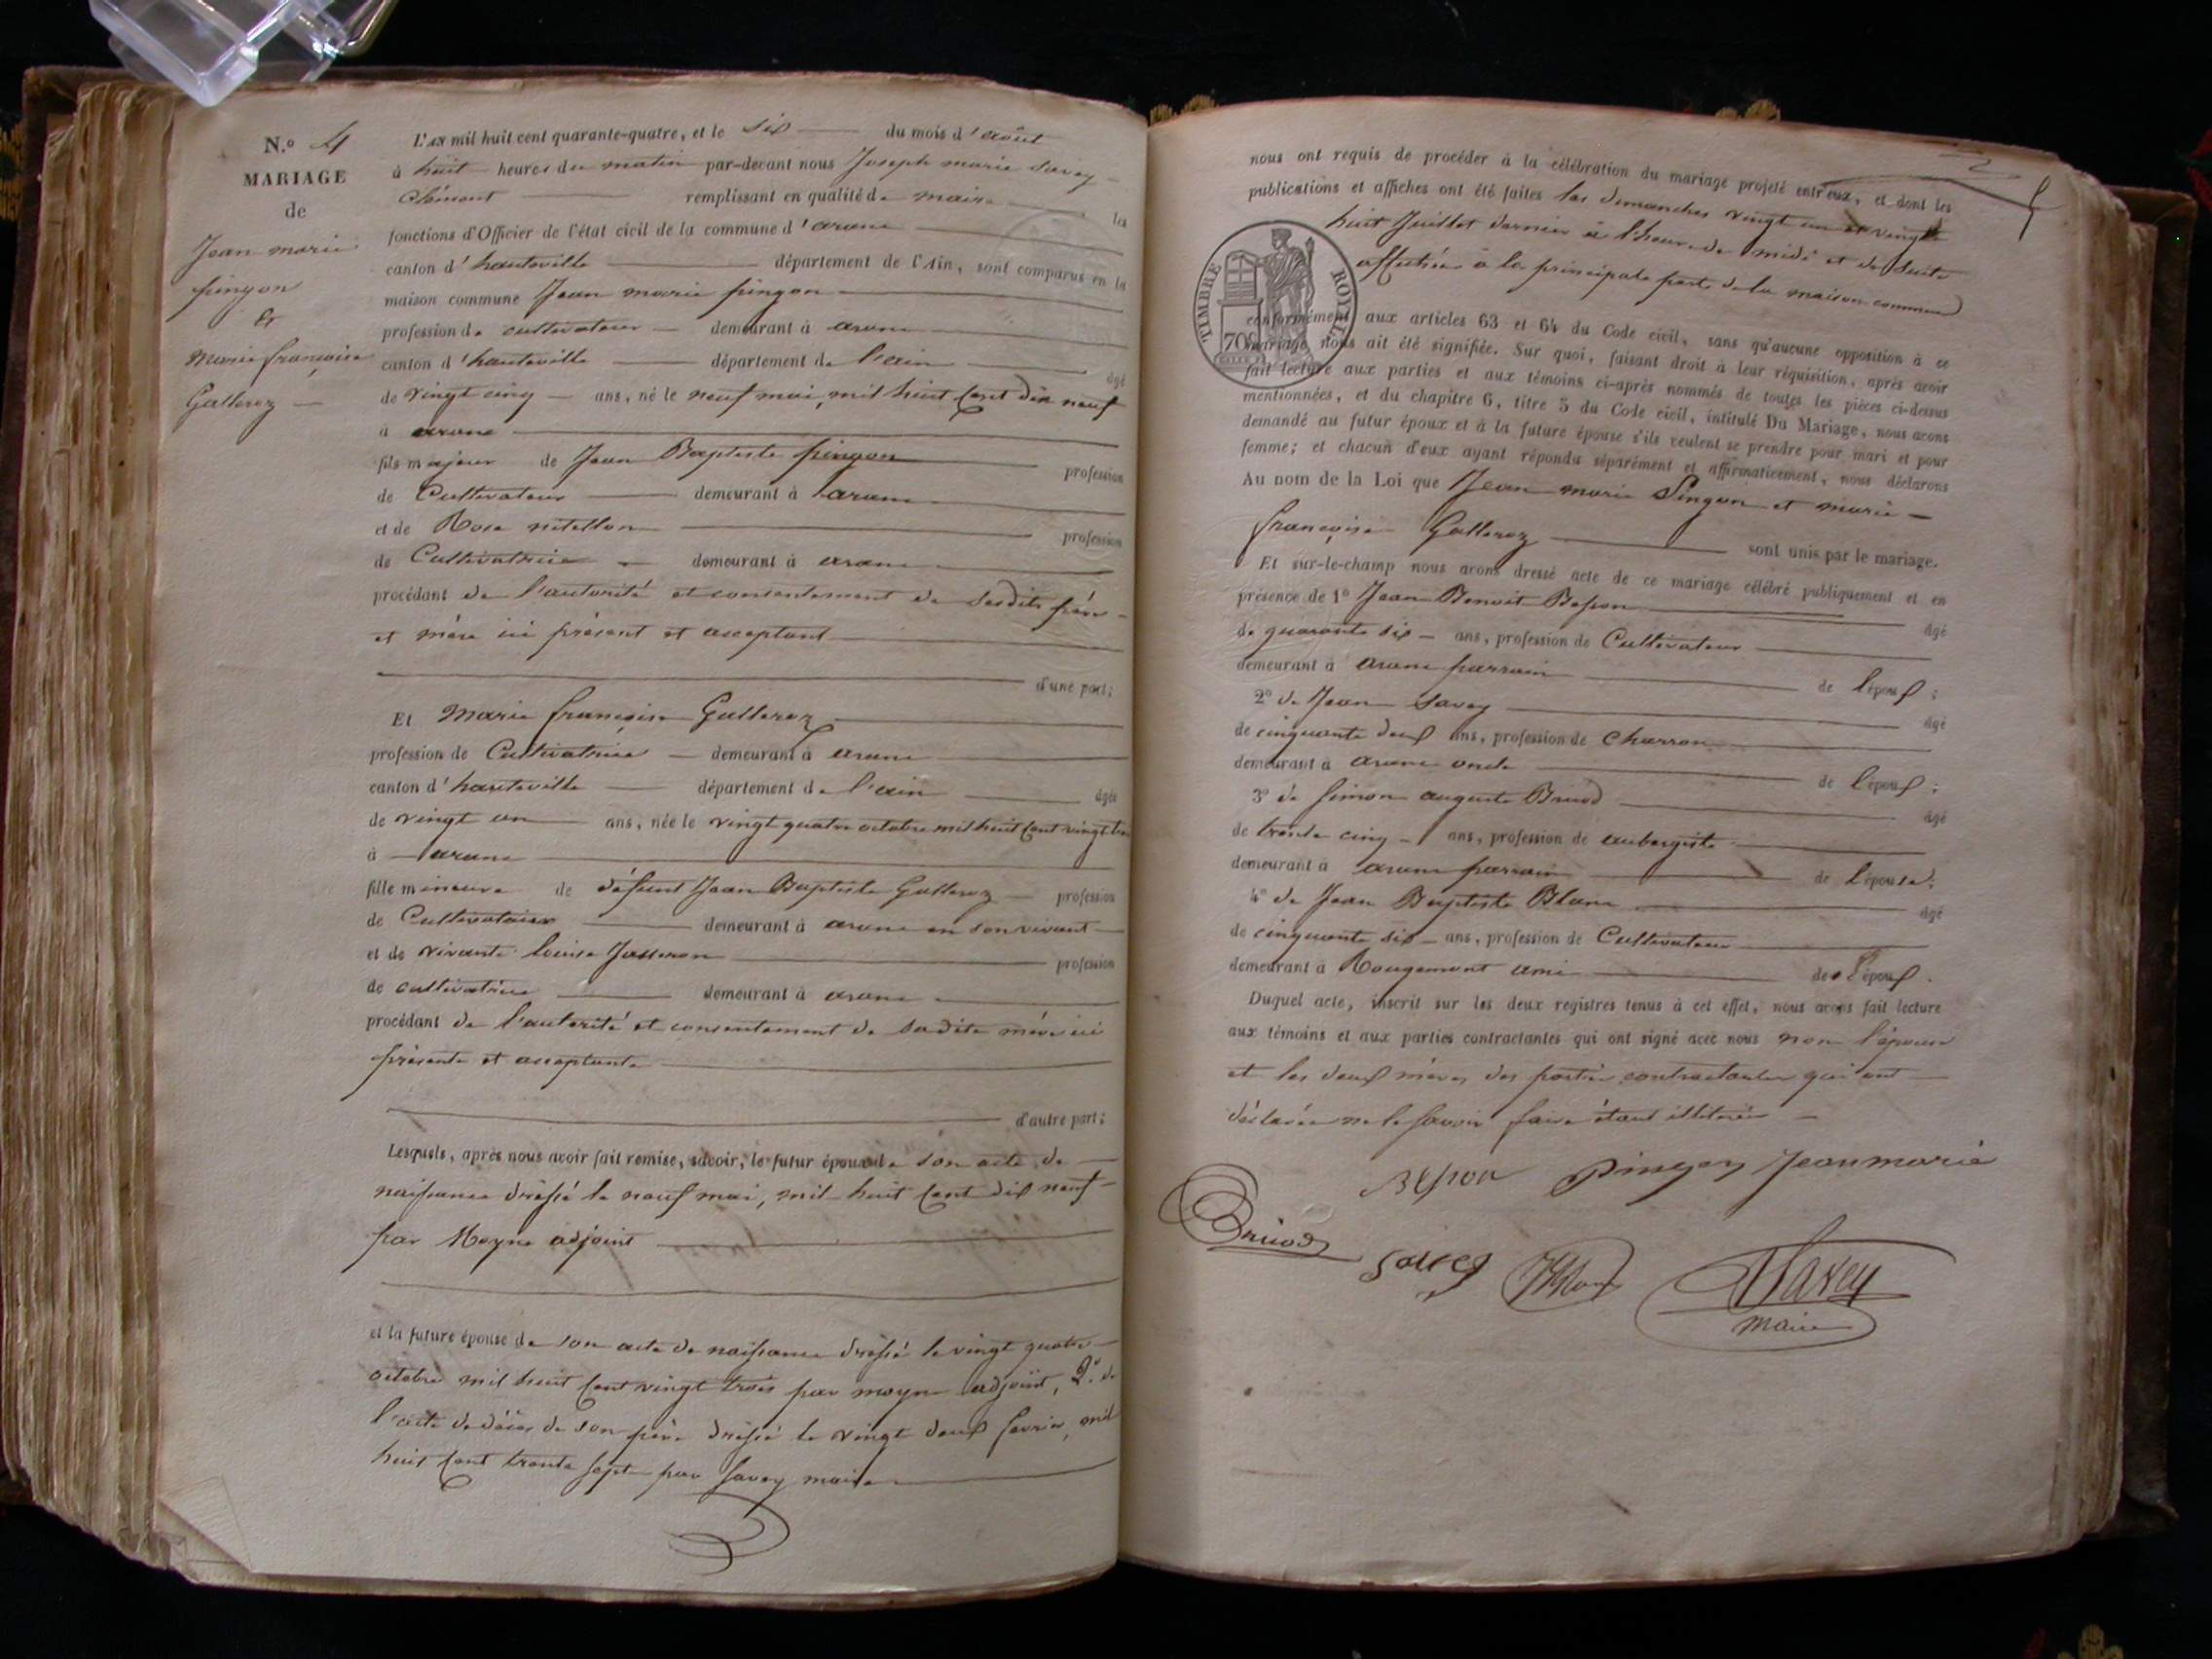 N.º 4
MARIAGE
de
Jean marie
pingon
&
Marie françoise
Galleroz
L'an mil huit cent quarante-quatre, et le six du mois d'août
à huit heures du matin par-devant nous Joseph marie Savey
Clément remplissant en qualité de maire les
fonctions d'Officier de l'état civil de la commune d'arane
canton d'hauteville département de l'Ain, sont comparus en la
maison commune Jean marie pingon
profession de cultivateur demeurant à arane
canton d'hauteville département de l'ain âgé
de vingt cinq ans, né le neuf mai, mil huit cent dix neuf
à arane
fils majeur de Jean Baptiste pingon profession
de Cultivateur demeurant à arane
et de Rose profession
de Cultivatrice demeurant à arane
procédant de l'autorité et consentement de sesdits père
et mère ici présent et acceptant
d'une part;
Et Marie françoise Galleroz
profession de Cultivatrice demeurant à arane
canton d'hauteville département de l'ain âgée
de vingt un ans, née le vingt quatre octobre mil huit cent vingt trois
à arane
fille mineure de défunt Jean Baptiste Galleroz profession
de Cultivateur demeurant à arane en son vivant
et de vivante louise Jasseron profession
de cultivatrice demeurant à arane
procédant de l'autorité et consentement de sadite mère ici
présente et acceptante
d'autre part;
Lesquels, après nous avoir fait remise, savoir, le futur époux de son acte de
naissance dréssé le neuf mai, mil huit cent dix neuf
par Moyne adjoint
et la future épouse de son acte de naissance dréssé le vingt quatre
octobre mil huit cent vingt trois par moyne adjoint, 2º de
l'acte de décès de son père dréssé le vingt deux fevrier, mil
huit cent trente sept par Savey maire
nous ont requis de procéder à la célébration du mariage projeté entr'eux, et dont les
publications et affiches ont été faites les dimanches vingt un et vingt
huit Juillet dernier à l'heure de midi et de suite
affichées à la principale porte de la maison commune
TIMBRE ROYAL
70
conformément aux articles 63 et 64 du Code civil, sans qu'aucune opposition à ce
mariage nous ait été signifiée. Sur quoi, faisant droit à leur réquisition, après avoir
fait lecture aux parties et aux témoins ci-après nommés de toutes les pièces ci-dessus
mentionnées, et du chapitre 6, titre 5 du Code civil, intitulé Du Mariage, nous avons
demandé au futur époux et à la future épouse s'ils veulent se prendre pour mari et pour
femme; et chacun d'eux ayant répondu séparément et affirmativement, nous déclarons
Au nom de la Loi que Jean marie Pingon et marie
françoise Galleroz sont unis par le mariage.
Et sur-le-champ nous avons dressé acte de ce mariage célébré publiquement et en
présence de 1º Jean Benoit Besson âgé
de quarante six ans, profession de Cultivateur
demeurant à arane parrain de l'époux;
2º de Jean Savey âgé
de cinquante deux ans, profession de Charron
demeurant à arane oncle de l'époux;
3º de Simon auguste Bruod âgé
de trente cinq ans, profession de aubergiste
demeurant à arane parrain de l'épouse;
4º de Jean Baptiste Blanc âgé
de cinquante six ans, profession de Cultivateur
demeurant à Rougemont ami de l'époux.
Duquel acte, inscrit sur les deux registres tenus à cet effet, nous avons fait lecture
aux témoins et aux parties contractantes qui ont signé avec nous non l'épouse
et les deux mères des parties contractantes qui ont
déclarée ne le savoir faire étant illitérées
Besson Pingon Jean marie
Bruod Savey Savey
maire